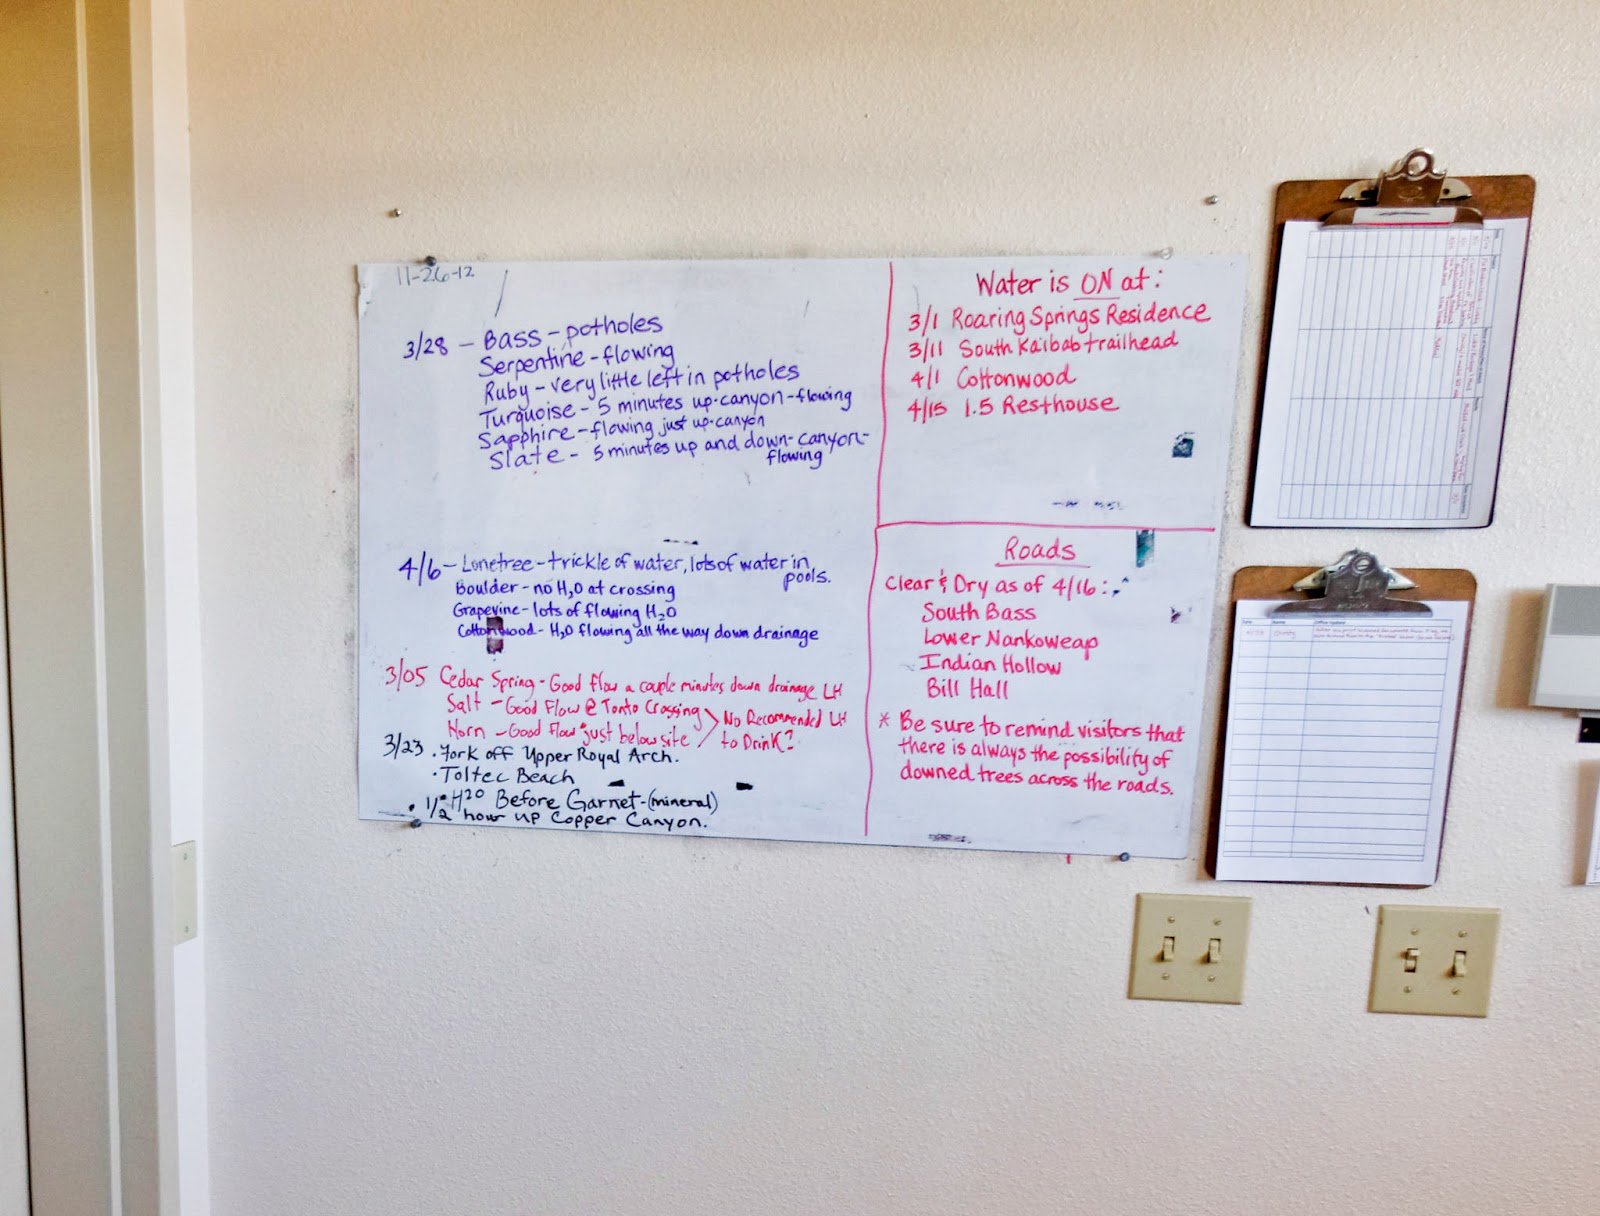 11-26-12
3/28 - Bass - potholes
Serpentine - flowing
Ruby - very little left in potholes
Turquoise - 5 minutes up-canyon - flowing
Sapphire - flowing just up-canyon
Slate - 5 minutes up and down-canyon-
flowing
4/6 - Lonetree - trickle of water, lots of water in
pools.
Boulder - no H2O at crossing
Grapevine - lots of flowing H2O
Cottonwood - H2O flowing all the way down drainage
3/05 Cedar Spring - Good flow a couple minutes down drainage LH
Salt - Good Flow @ Tonto Crossing
Horn - Good flow just below site
No Recommended LH
to Drink?
3/23 • Fork off Upper Royal Arch.
• Toltec Beach
• H2O Before Garnet - (mineral)
• 1/2 hour up Copper Canyon.
Water is ON at:
3/1 Roaring Springs Residence
3/11 South Kaibab trailhead
4/1 Cottonwood
4/15 1.5 Resthouse
Roads
Clear & Dry as of 4/16:
South Bass
Lower Nankoweap
Indian Hollow
Bill Hall
* Be sure to remind visitors that
there is always the possibility of
downed trees across the roads.